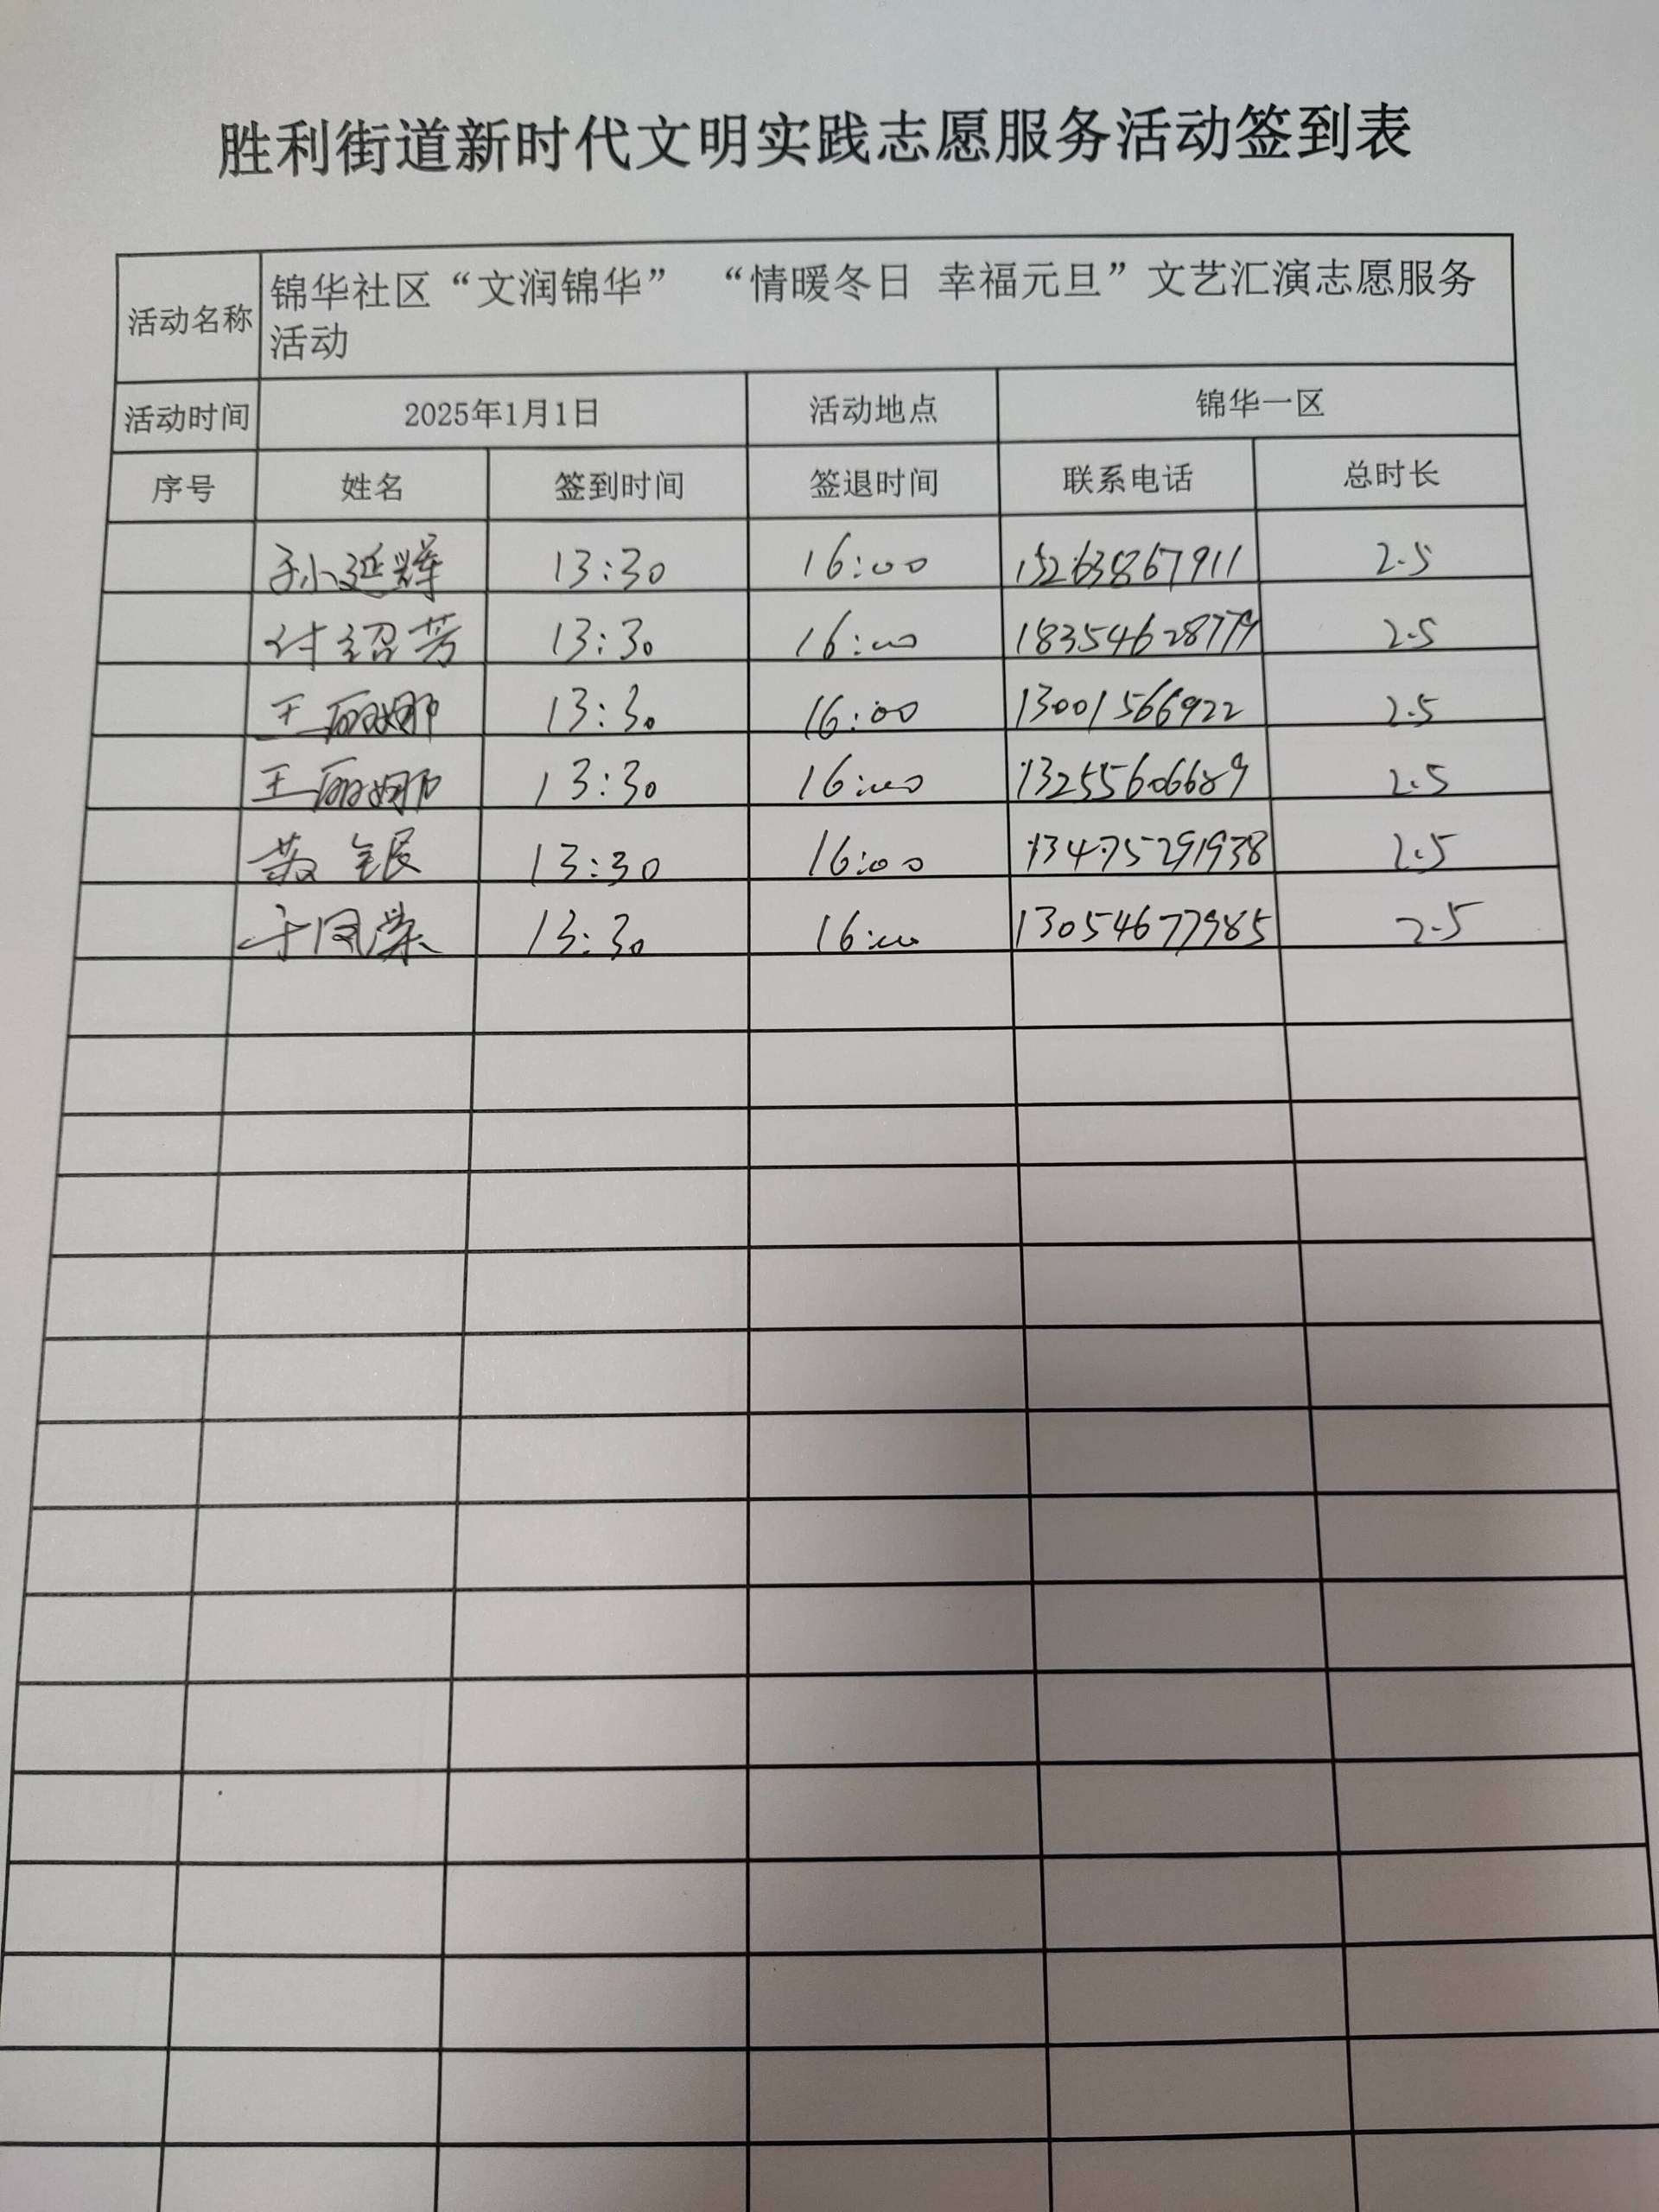 胜利街道新时代文明实践志愿服务活动签到表
活动名称 锦华社区“文润锦华” “情暖冬日 幸福元旦”文艺汇演志愿服务
活动
活动时间 2025年1月1日 活动地点 锦华一区
序号 姓名 签到时间 签退时间 联系电话 总时长
孙延辉 13:30 16:00 15263867911 2.5
付绍芳 13:30 16:00 2.5
王丽娜 13:30 16:00 13001566922 2.5
王丽娜 13:30 16:00 13255606689 2.5
13:30 16:00 13475291938 2.5
于凤荣 13:30 16:00 13054677985 2.5